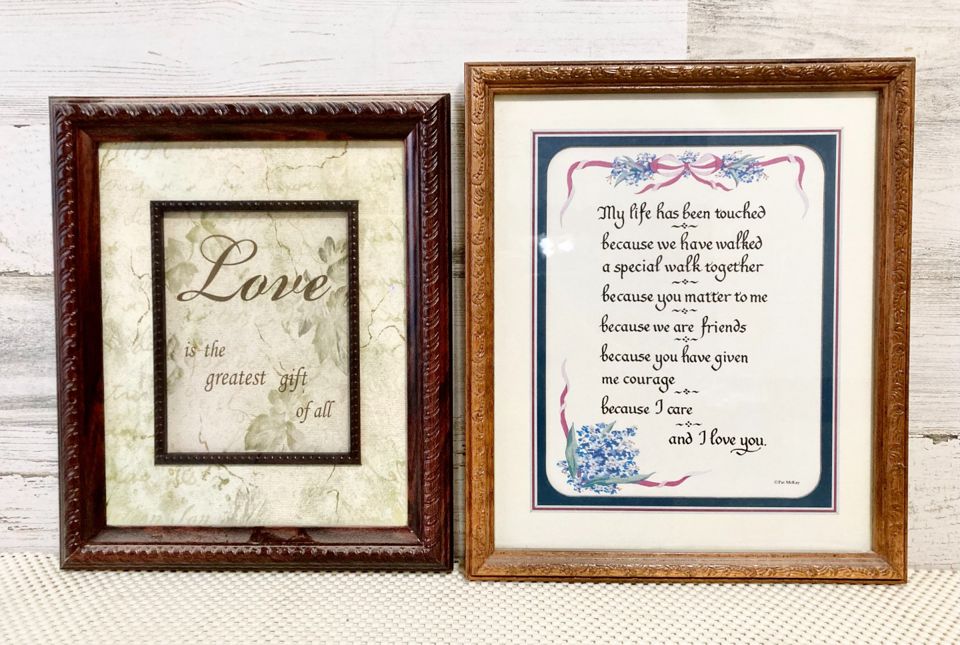 Love
is the
greatest gift
of all
My life has been touched
because we have walked
a special walk together
because you matter to me
because we are friends
because you have given
me courage
because I care
and I love you.
©Pat McKay